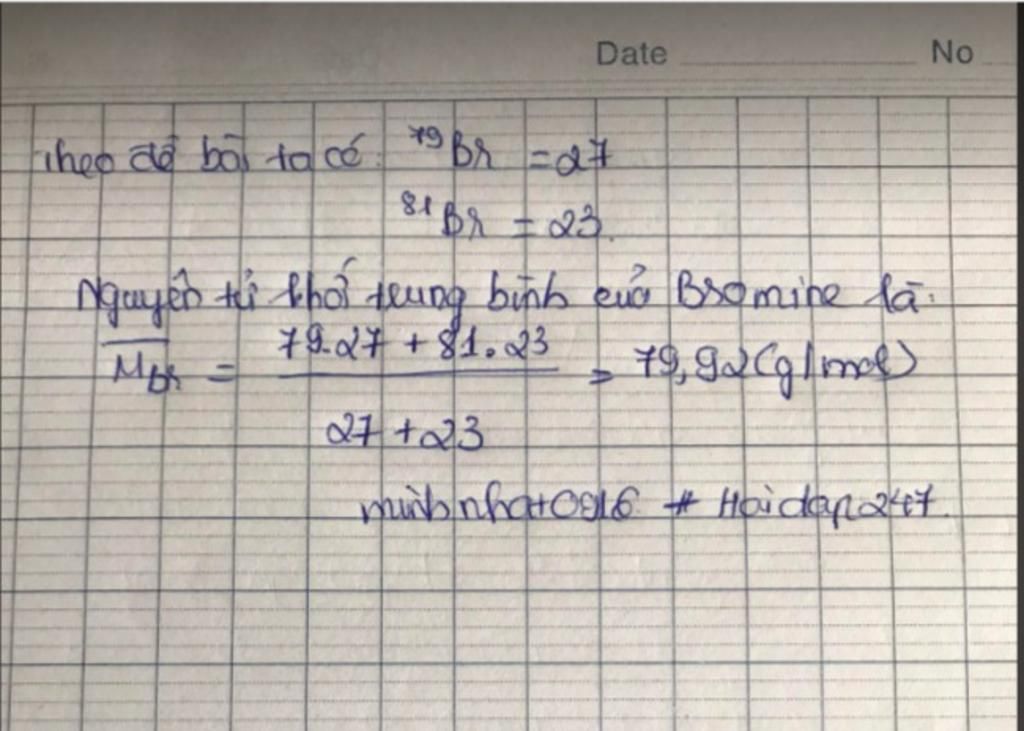 Date No
Theo đề bài ta có: ⁷⁹Br = 27
⁸¹Br = 23.
Nguyên tử khối trung bình của Bromine là:
M̅Br = (79.27 + 81.23) / (27 + 23) = 79,92 (g/mol)
minhnhat0916 # Hoidap247.